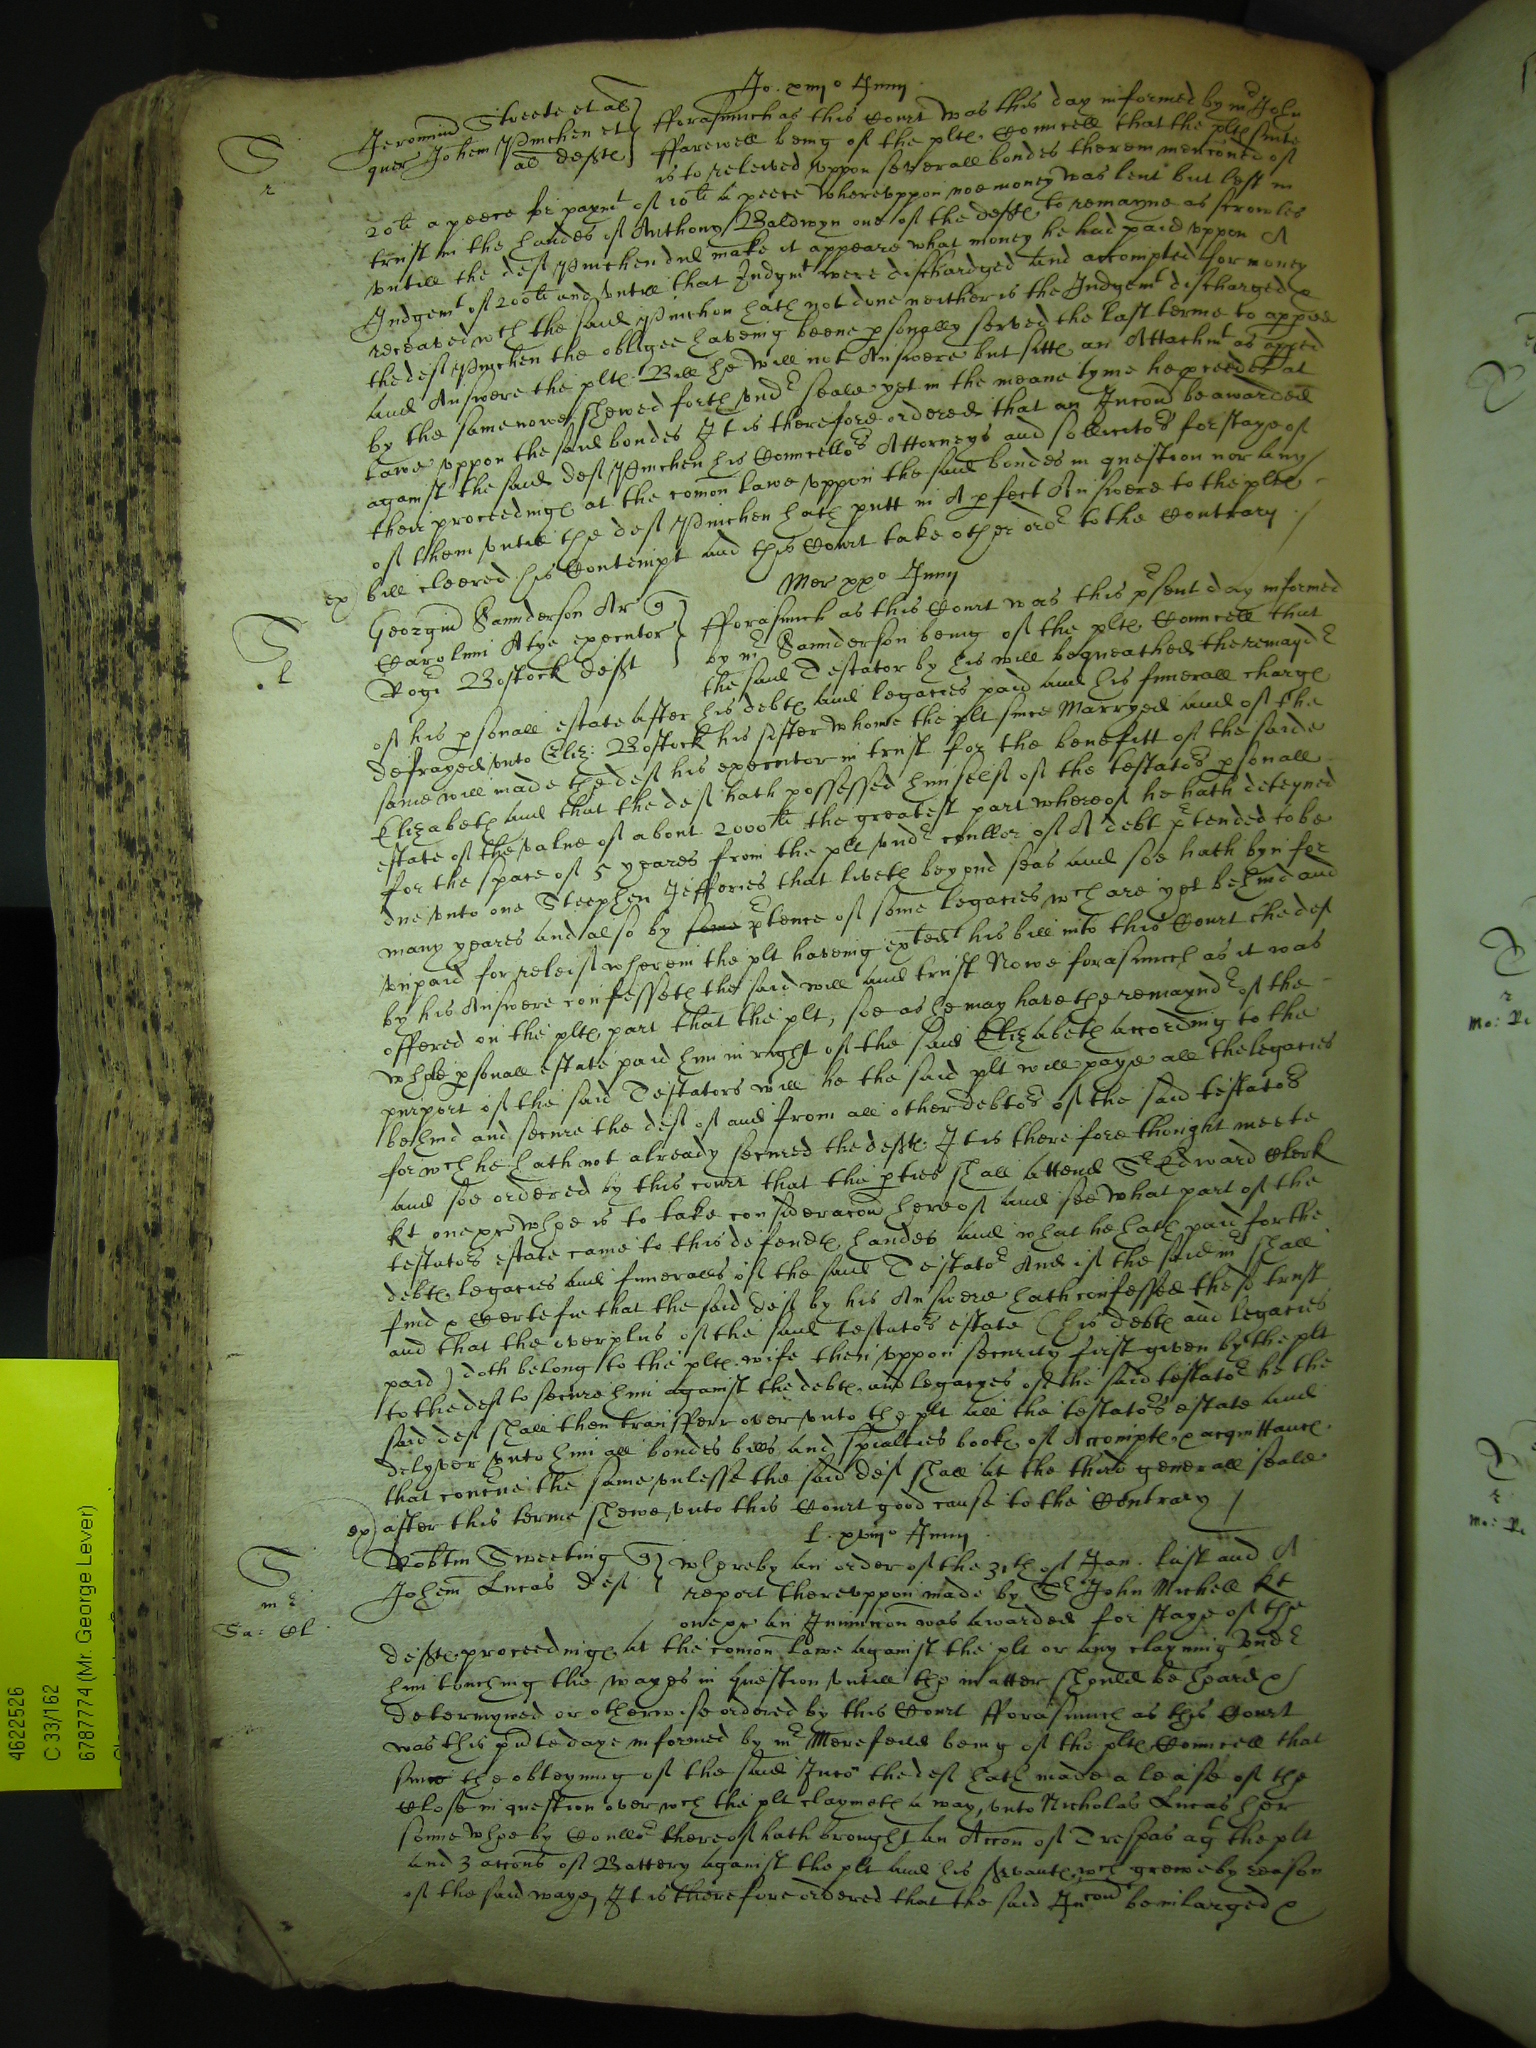 Jo. xviijo Junij
Jeronimu Streete et al
quer Johem Pinchen et
al defte
fforasmuch as this Court was this day informed by mr John
ffarewell being of the plte Councell that the plte suite
is to releived vppon severall bondes therein menconed of
20li a peece for paymt of 10li a peece wherevppon noe money was lent but left in
trust in the handes of Anthony Baldwyn one of the defte to remayne as scrowles
vntill the deft Pinchen did make it appeare what money he had paid vppon A
Judgemt of 200li and vntill that Judgmt were dischardged and accompted for money
receaved wch the said Pinchon hath not done neither is the Judgemt discharged &
the deft Pinchen the obligee haveing beene psonally served the last terme to appeare
and Answere the plte Bill he will not Answere but sitte an Attachmt as appeed
by the same nowe shewed forth vndr seale yet in the meane tyme he pceedes at
lawe vppon the said bondes It is therefore ordered that an Iniuncon be awarded
against the said deft Pinchen his Councellors Attorneys and sollicitors for staye of
their proceedinge at the comon lawe vppon the said bondes in question nor any
of them vntill the deft Pinchen hath putt in A pfect Answere to the plte
ex bill cleered his Contempt and this Court take other ordr to the Contrary
Mer xxo Junij
S
l
Georgiu Saunderson Ar q
Carolinu Atye executor
Rogr Bostock deft
fforasmuch as this Court was this psent day informed
by mr Saunderson being of the plte Councell that
the said Testator by his will bequeathed the remayndr
of his psonall estate after his debte and legacies paid and his funerall charge
defrayed vnto Eliz: Bostock his sister whome the plt since Marryed and of the
same will made the deft his executor in trust for the benefitt of the saide
Elizabeth and that the deft hath possessed himselfe of the testators psonall
estate of the value of about 2000li the greatest part whereof he hath deteyned
for the space of 5 yeares from the plt vndr couller of A debt ptended to be
due vnto one Steephen Jefferies that liveth beyond seas and soe hath byn for
many yeares and also by some ptence of some legacies wch are yet behind and
vnpaid for releife wherein the plt haveing exted his bill into this Court the deft
by his Answere confesseth the said will and trust Nowe forasmuch as it was
offered on the plte part that the plt, soe as he may have the remayndr of the
whole psonall estate paid him in right of the said Elizabeth according to the
purport of the said Testators will he the said plt will paye all the legacies
behind and secure the deft of and from all other debtes of the said testators
for wch he hath not already secured the defte. It is therefore thought meete
and soe ordered by this court that the pties shall attend Sr Edward Clerk
kt one &c whoe is to take consideracon hereof and see what part of the
testators estate came to this defendte handes and what he hath paid for the
debte legacies and funeralls of the said Testator And if the said mr shall
find & Certefie that the said deft by his Answere hath confessed the sd trust
and that the overplus of the said testators estate (his debte and legacies
paid) doth belong to the plte wife then vppon security first given by the plt
to the deft to secure him against the debte and legacyes of the said testator he the
said deft shall then transferr over vnto the plt all the testators estate and
delyver vnto him all bondes bills and spialties booke of Accompte & acquittance
that concrne the same vnlesse the said deft shall at the third generall seale
ex after this terme shewe vnto this Court good cause to the Contrary
l. xviijo Junij
S
mr
Sa: Cl
Robtm Sweeting q
Johem Lucas deft
whereby an order of the 31th of Jan. last and A
report therevppon made by Sr John Michell kt
one &c an Iniuncon was awarded for staye of the
defte proceedinge at the comon lawe against the plt or any clayming vndr
him touching the wayes in question vntill the matter should be heard &
determyned or otherwise ordered by this Court fforasmuch as this Court
was this pnte daye informed by mr Merefeild being of the plte Councell that
since the obteyning of the said Iniuc the deft hath made a lease of the
Close in question over wch the plt claymeth a way, vnto Nicholas Lucas her
sonne whoe by Coullr thereof hath brought an Accon of Trespas agt the plt
and 3 accons of Battery against the plt and his servante wch grewe by reason
of the said waye, It is therefore ordered that the said Iniuncon be inlarged &
4622526
C 33/162
6787774 (Mr. George Lever)